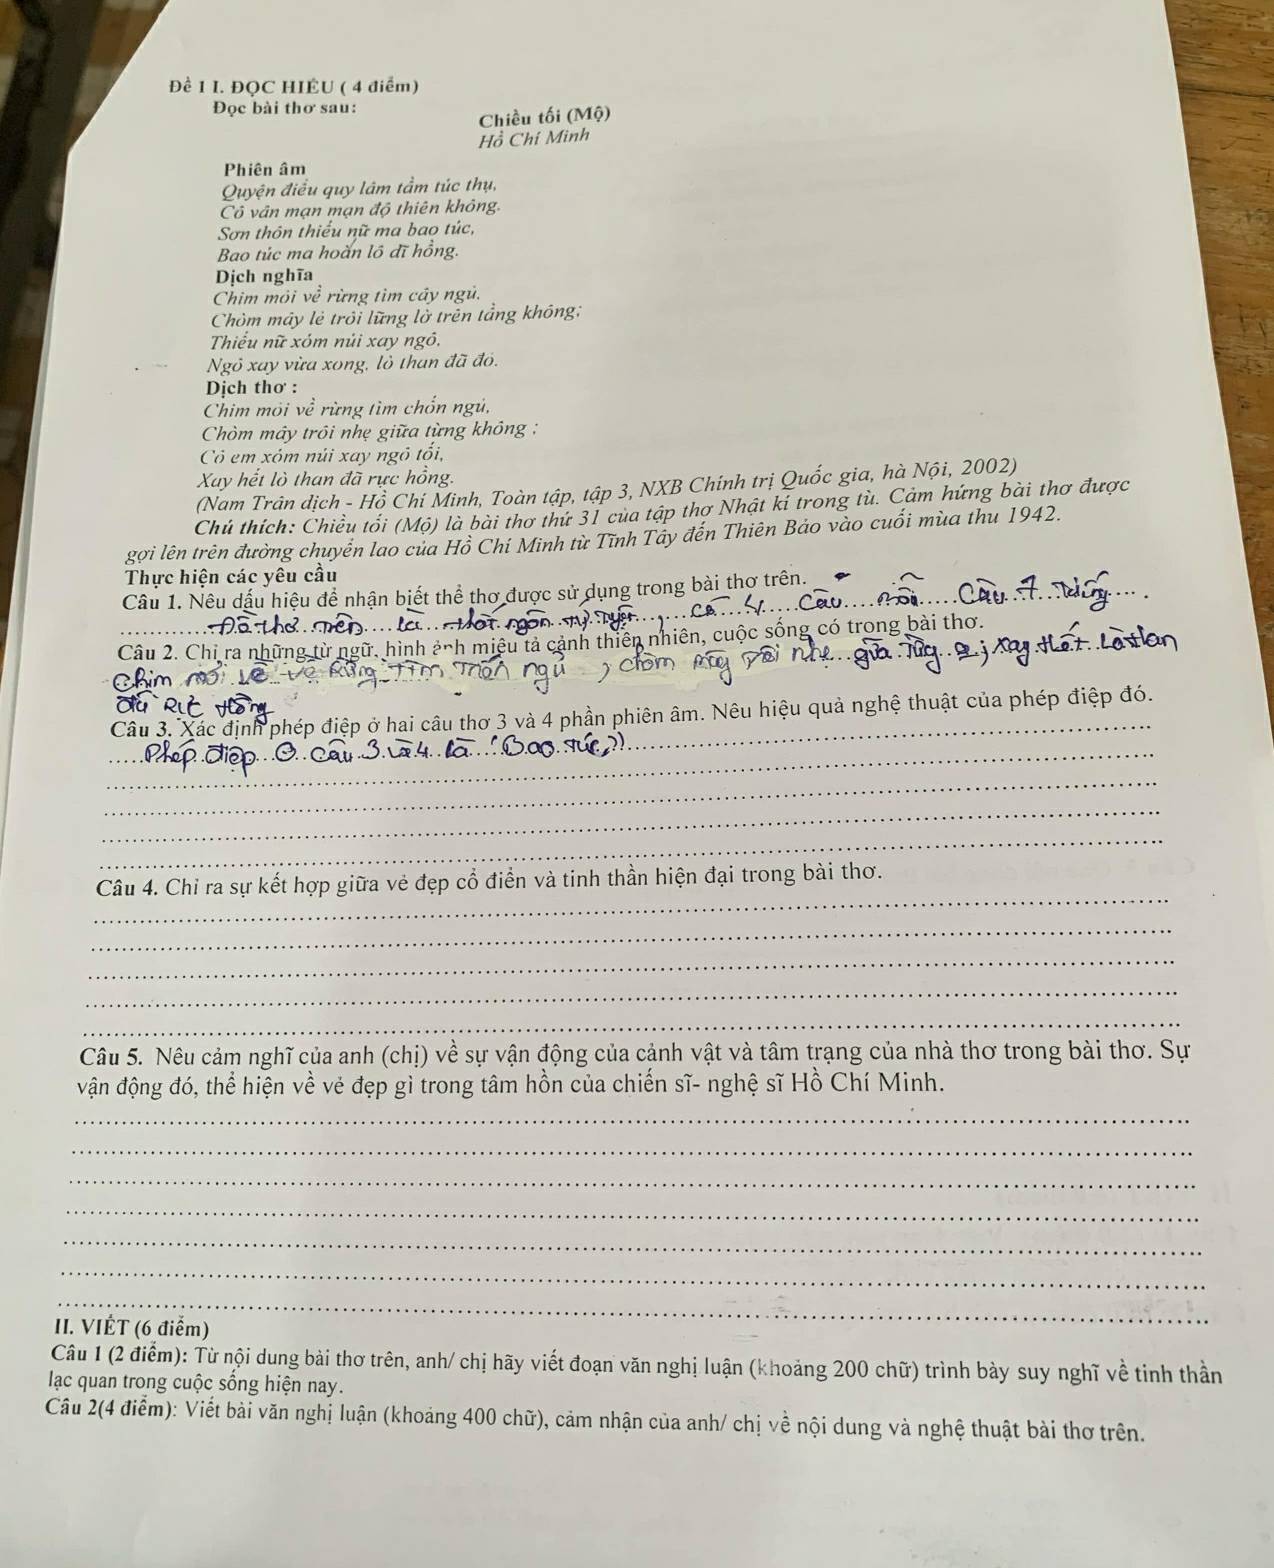 Đề 1 I. ĐỌC HIỂU ( 4 điểm)
Đọc bài thơ sau:
Chiều tối (Mộ)
Hồ Chí Minh
Phiên âm
Quyện điểu quy lâm tầm túc thụ,
Cô vân mạn mạn độ thiên không.
Sơn thôn thiếu nữ ma bao túc,
Bao túc ma hoàn lô dĩ hồng.
Dịch nghĩa
Chim mỏi về rừng tìm cây ngủ,
Chòm mây lẻ trôi lững lờ trên tầng không;
Thiếu nữ xóm núi xay ngô,
Ngô xay vừa xong, lò than đã đỏ.
Dịch thơ :
Chim mỏi về rừng tìm chốn ngủ,
Chòm mây trôi nhẹ giữa từng không ;
Cô em xóm núi xay ngô tối,
Xay hết lò than đã rực hồng.
(Nam Trân dịch - Hồ Chí Minh, Toàn tập, tập 3, NXB Chính trị Quốc gia, hà Nội, 2002)
Chú thích: Chiều tối (Mộ) là bài thơ thứ 31 của tập thơ Nhật kí trong tù. Cảm hứng bài thơ được
gợi lên trên đường chuyển lao của Hồ Chí Minh từ Tĩnh Tây đến Thiên Bảo vào cuối mùa thu 1942.
Thực hiện các yêu cầu
Câu 1. Nêu dấu hiệu để nhận biết thể thơ được sử dụng trong bài thơ trên.
thơ trên là thất ngôn tứ tuyệt, có 4 câu mỗi câu 7 tiếng
Câu 2. Chỉ ra những từ ngữ, hình ảnh miêu tả cảnh thiên nhiên, cuộc sống có trong bài thơ.
Chim mỏi về rừng tìm ngủ ; chòm mây trôi nhẹ giữa từng ; xay hết lò than
đã rực hồng
Câu 3. Xác định phép điệp ở hai câu thơ 3 và 4 phần phiên âm. Nêu hiệu quả nghệ thuật của phép điệp đó.
Phép điệp ở câu 3 và 4 là "Bao túc"
Câu 4. Chỉ ra sự kết hợp giữa vẻ đẹp cổ điển và tinh thần hiện đại trong bài thơ.
Câu 5. Nêu cảm nghĩ của anh (chị) về sự vận động của cảnh vật và tâm trạng của nhà thơ trong bài thơ. Sự
vận động đó, thể hiện về vẻ đẹp gì trong tâm hồn của chiến sĩ- nghệ sĩ Hồ Chí Minh.
II. VIẾT (6 điểm)
Câu 1 (2 điểm): Từ nội dung bài thơ trên, anh/ chị hãy viết đoạn văn nghị luận (khoảng 200 chữ) trình bày suy nghĩ về tinh thần
lạc quan trong cuộc sống hiện nay.
Câu 2(4 điểm): Viết bài văn nghị luận (khoảng 400 chữ), cảm nhận của anh/ chị về nội dung và nghệ thuật bài thơ trên.